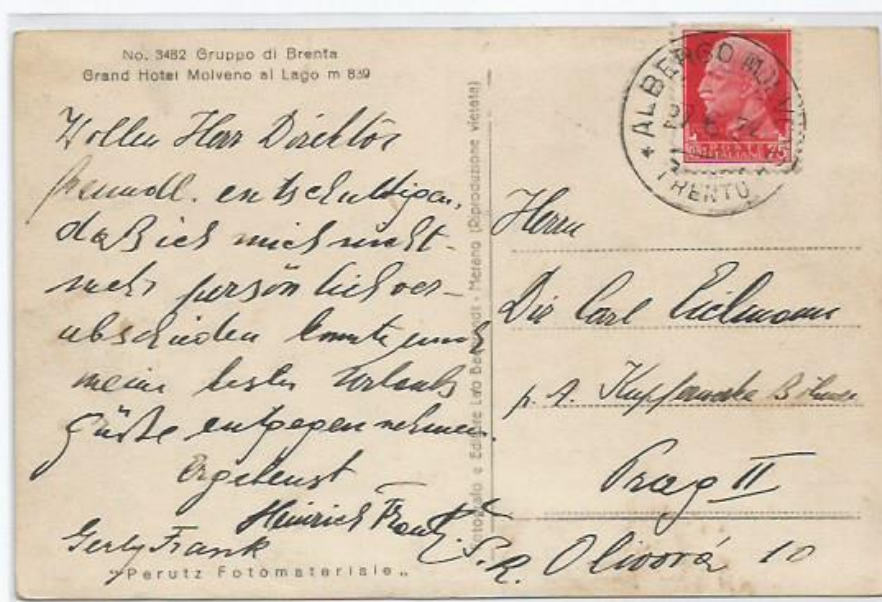 No. 3482 Gruppo di Brenta
Grand Hotel Molveno al Lago m 839
Wollen Herr Direktor
freundl. entschuldigen,
daß ich mich nicht
mehr persönlich ver-
abschieden konnte und
meine besten Urlaubs
Grüße entgegen nehmen.
Ergebenst
Heinrich Frank
Gerly Frank
"Perutz Fotomateriale"
Fotografo e Editore Leo Baehrendt - Merano (Riproduzione vietata)
ALBERGO MOLVENO
TRENTO
POSTE ITALIANE 75
Herrn
Dir Carl Eichmann
p. A. Kupferwerke Böhmen
Prag II
Č.S.R. Olivová 10